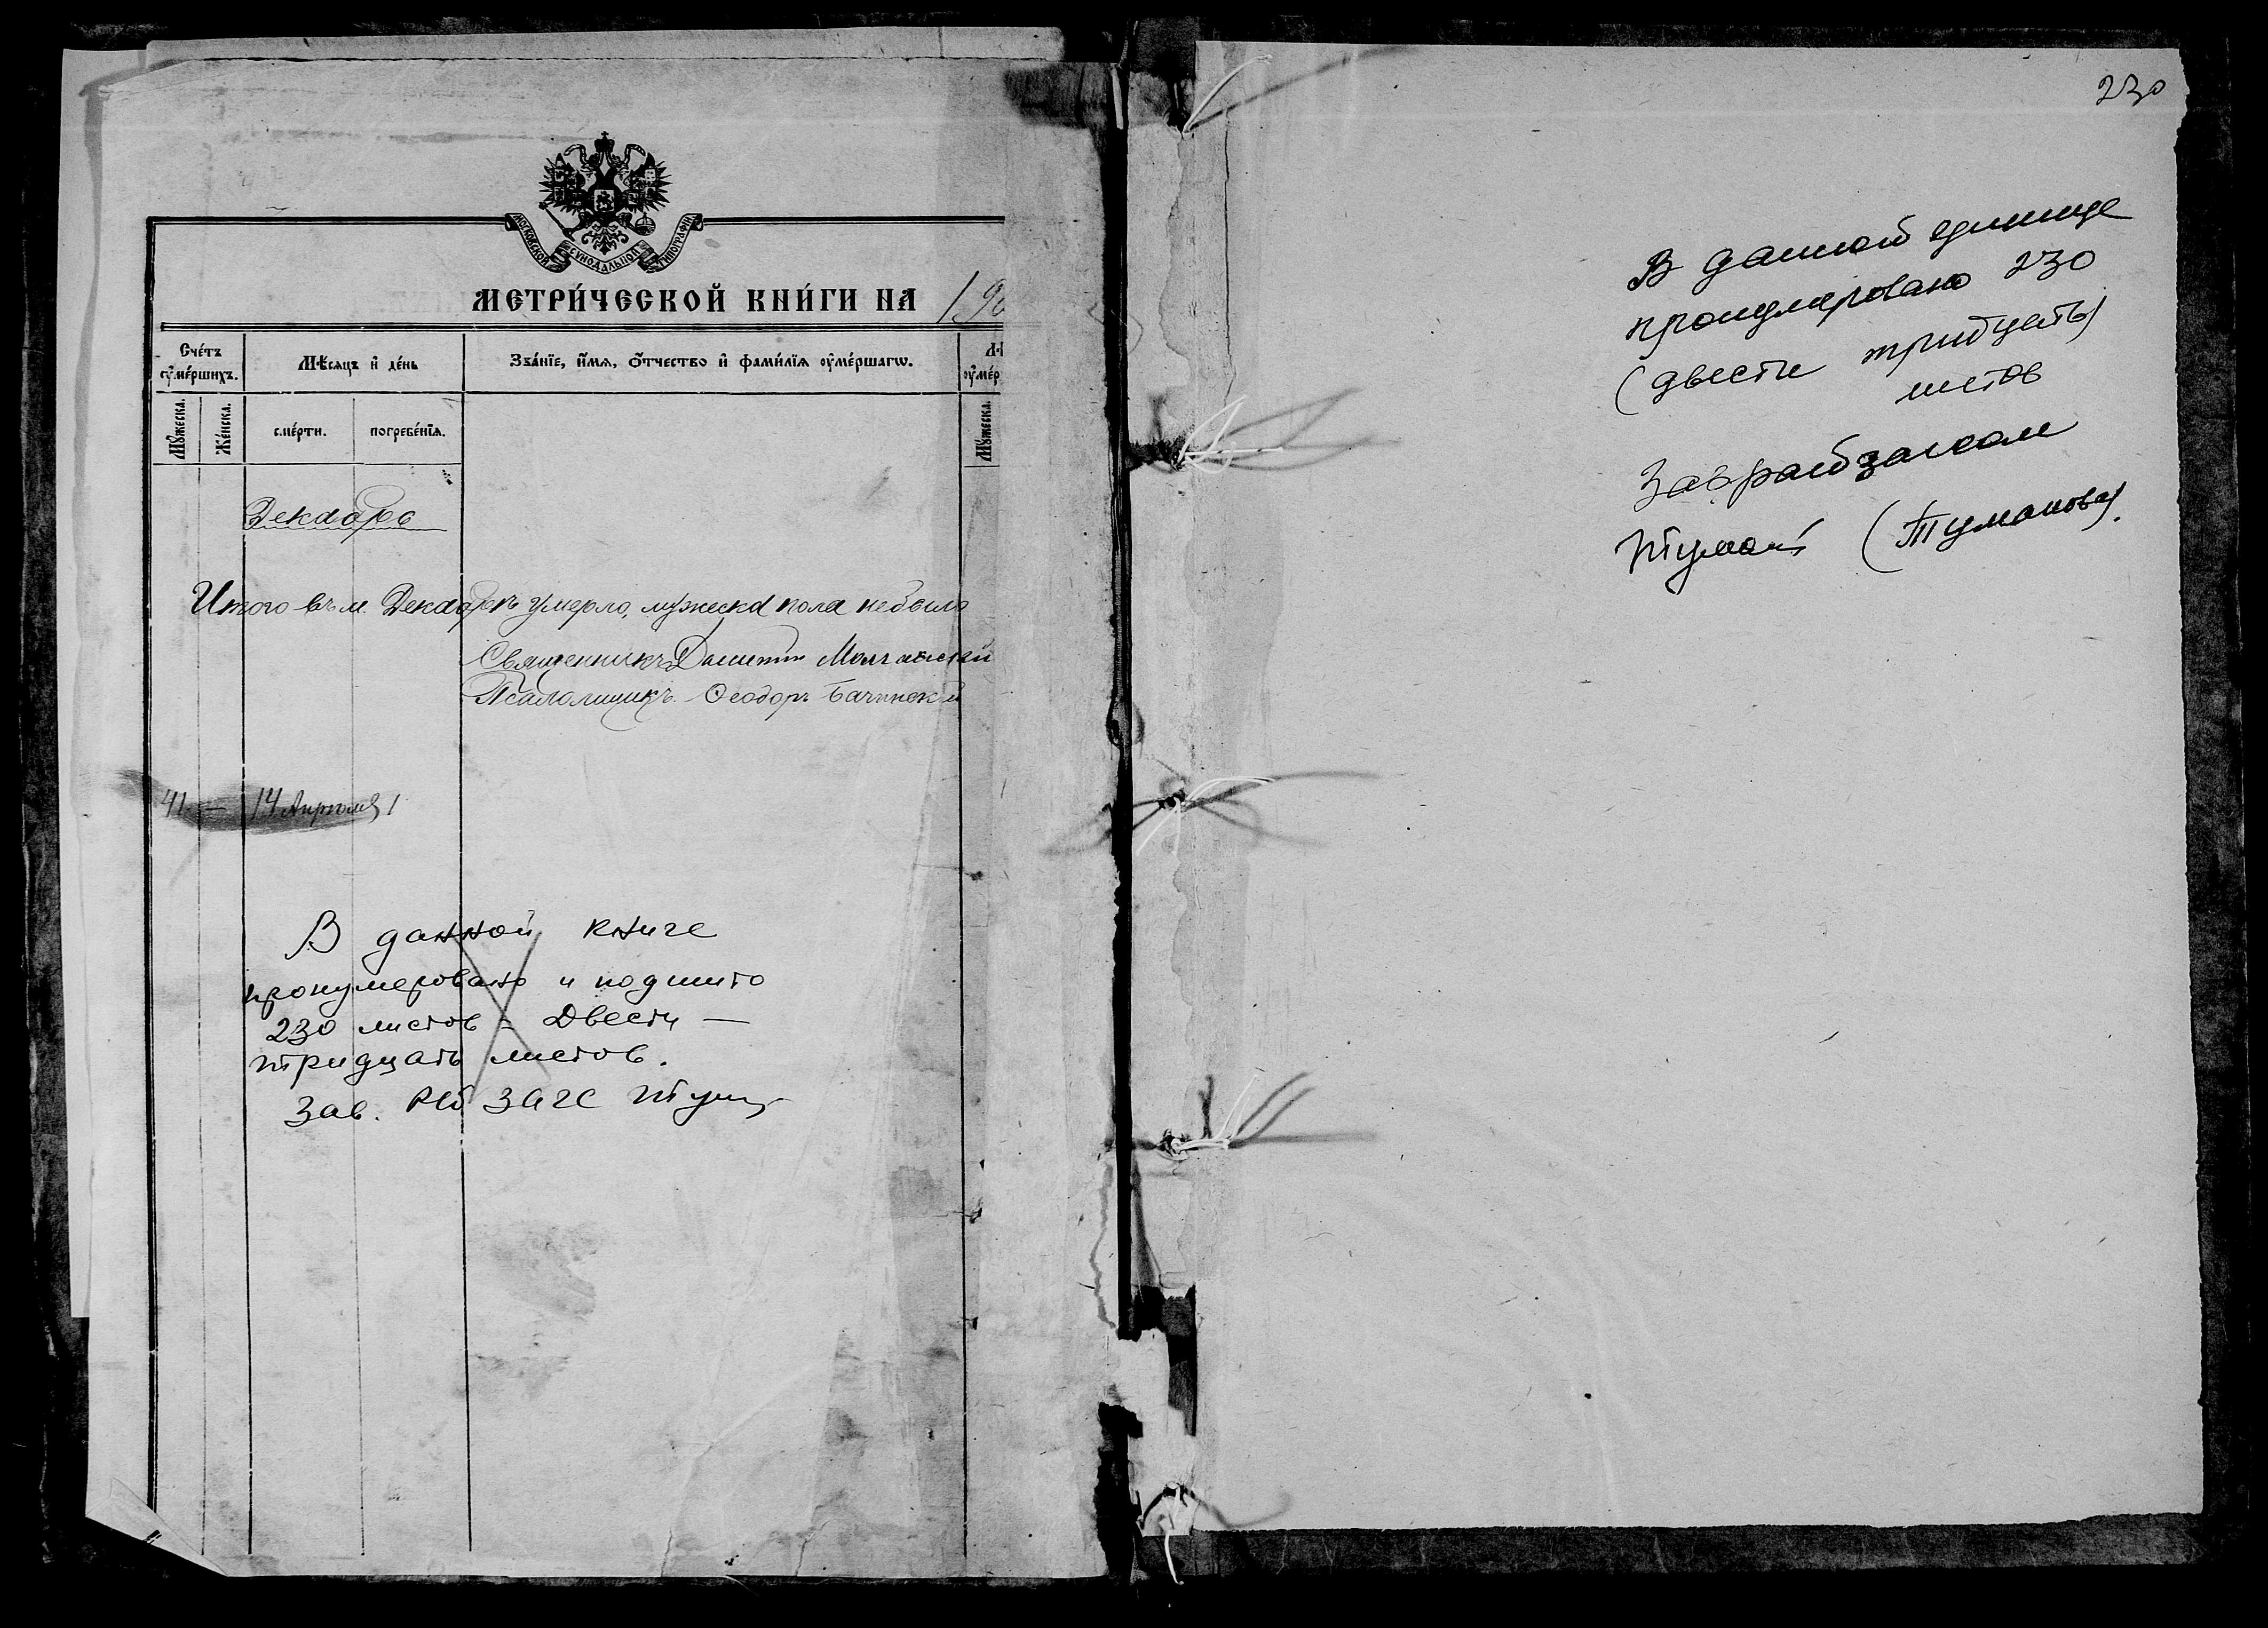 МОСКОВСКОЙ СѴНОДАЛЬНОЙ ТИПОГРАФІИ
МЕТРИ́ЧЕСКОЙ КНИ́ГИ НА 190
Сче́тъ ᲂу҆ме́ршихъ.
Мѣ́сяцъ и҆ де́нь
Зва́нїе, и҆́мя, ѻ҆́тчество и҆ фами́лїя ᲂу҆ме́ршагѡ.
Мꙋ́жеска.
Же́нска.
сме́рти.
погребе́нїя.
Мꙋ́жеска.
Декабрь
Итого въ м. Декабрѣ умерло, мужеска пола небыло
Священникъ
Псаломщикъ Ѳеодоръ Бачинскій
41 — 14 Апрѣля 1
В данной книге
пронумеровано и подшито
230 листов = Двести —
тридцать листов.
Зав. РБ ЗАГС
230
В данной единице
пронумеровано 230
(двести тридцать)
листов
Заврайбзагсом
(Туманова).